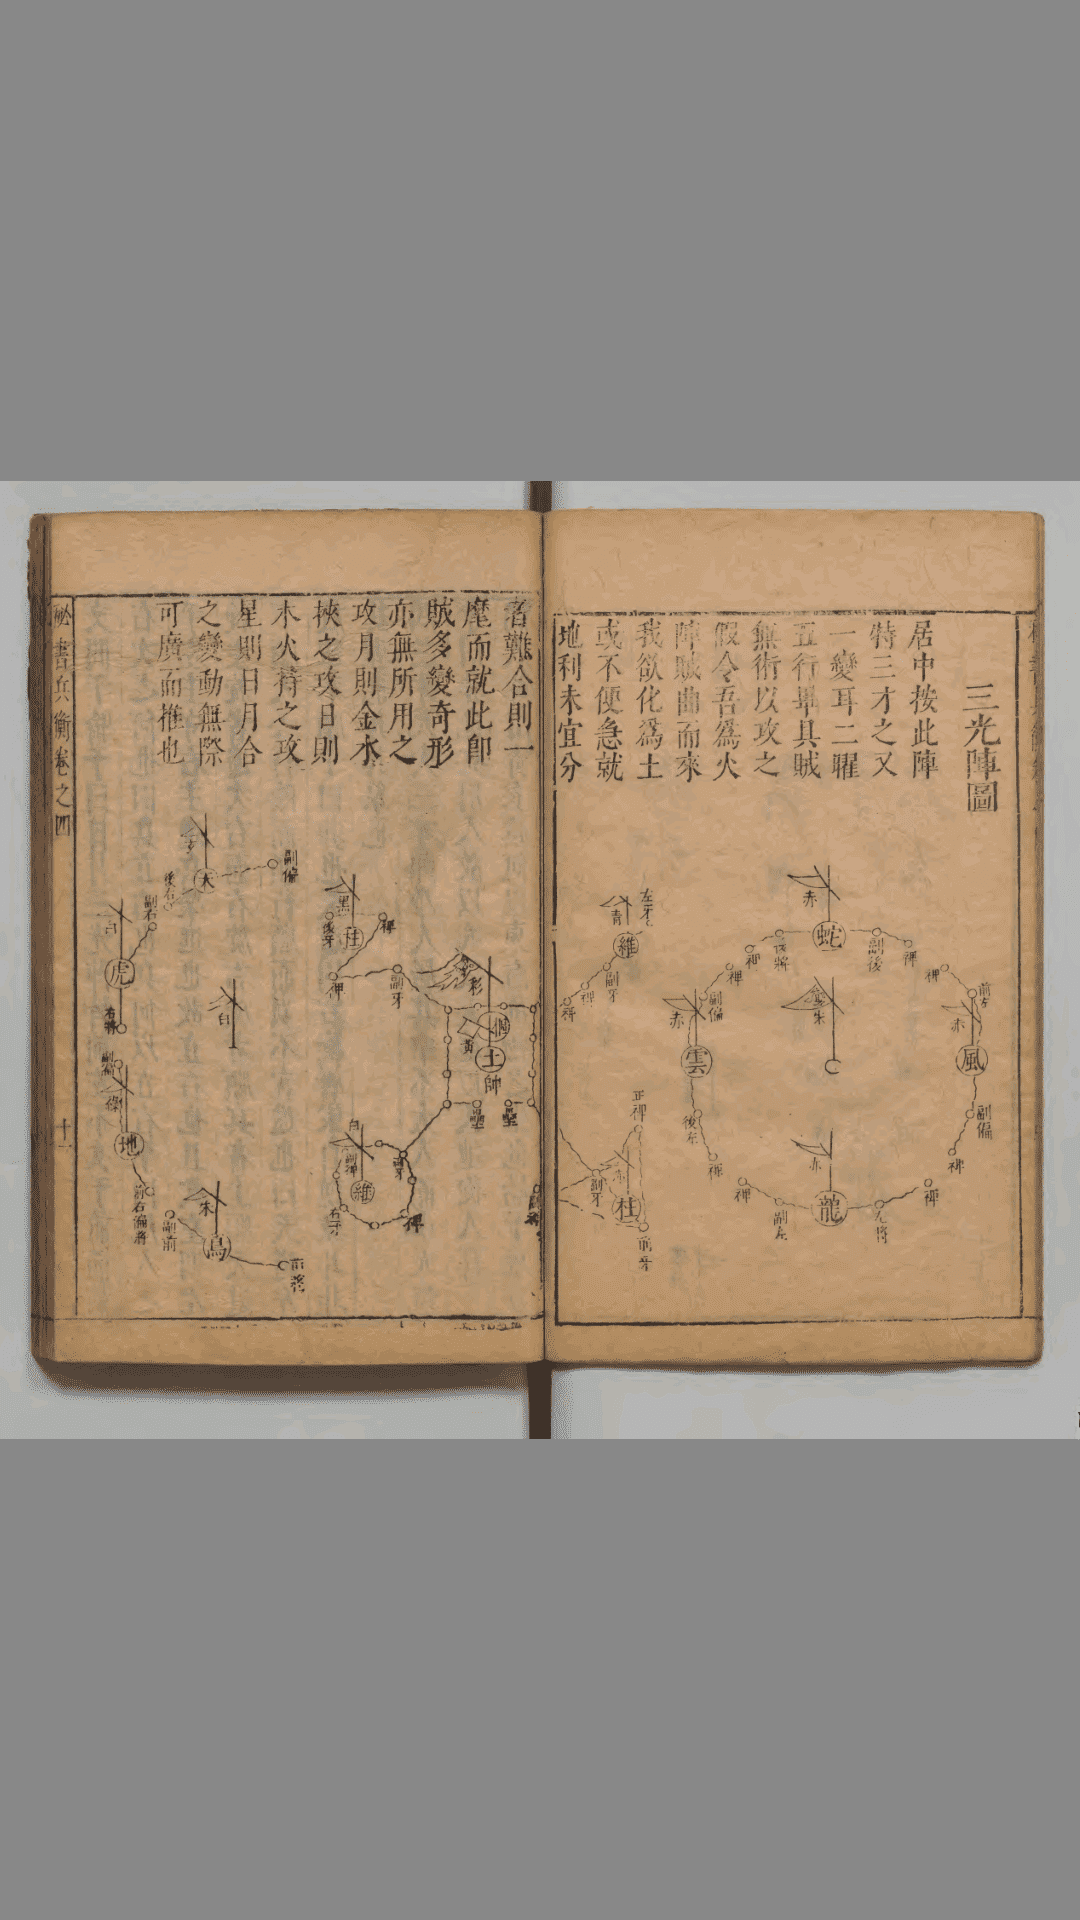 三光陣圖
居中按此陣
特三才之又
一變耳二曜
五行畢具賊
無術以攻之
假令吾爲火
陣賊曲而來
我欲化爲土
或不便急就
地利未宜分
蛇
赤
後將
副後
裨
裨
裨
裨
前左
風
赤
副偏
裨
朱
雲
赤
副偏
後左
裨
龍
赤
裨
副左
左將
裨
左牙
青
維
副牙
裨
裨
正裨
赤
柱
副牙
前牙
者難合則一
麾而就此卽
賊多變奇形
亦無所用之
攻月則金水
挾之攻日則
木火猗之攻
星則日月合
之變動無際
可廣而推也
黑
柱
後牙
裨
裨
副牙
彩
黃
土
帥
壘
壘
白
維
副裨
右牙
裨
天
副偏
後右
副右
白
虎
右將
白
副偏
綠
地
前右偏將
副前
朱
鳥
前將
祕書兵衡卷之四
十一